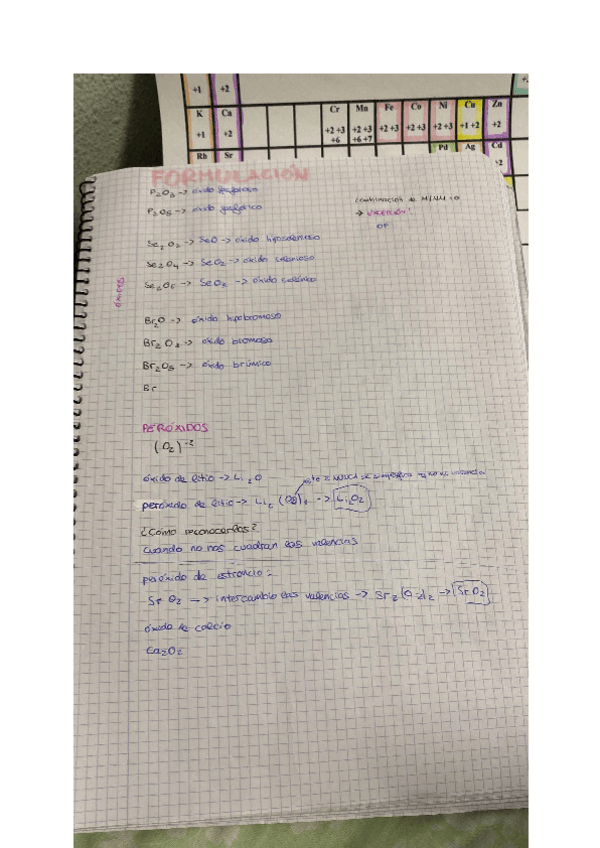 +1 +2
K Ca Cr Mn Fe Co Ni Cu Zn
+1 +2 +2 +3 +6 +2 +3 +6 +7 +2 +3 +2 +3 +2 +3 +1 +2 +2
Rb Sr Pd Ag Cd
+2
FORMULACIÓN
P2O3 -> óxido fosforoso
P2O5 -> óxido fosfórico
combinación de
-> EXCEPCIÓN!
OF
ÓXIDOS
Se2O2 -> SeO -> óxido hiposelenioso
Se2O4 -> SeO2 -> óxido selenioso
Se2O6 -> SeO3 -> óxido selénico
Br2O -> óxido hipobromoso
Br2O3 -> óxido bromoso
Br2O5 -> óxido brómico
Br
PERÓXIDOS
(O2)-2
óxido de litio -> Li2O
este 2 NUNCA se simplifica
peróxido de litio -> Li2 (O2)1 -> Li2O2
¿Cómo reconocerlos?
cuando no nos cuadran las valencias
peróxido de estroncio:
Sr O2 -> intercambio las valencias -> Sr2(O2)2 -> SrO2
óxido de calcio
Ca2O2